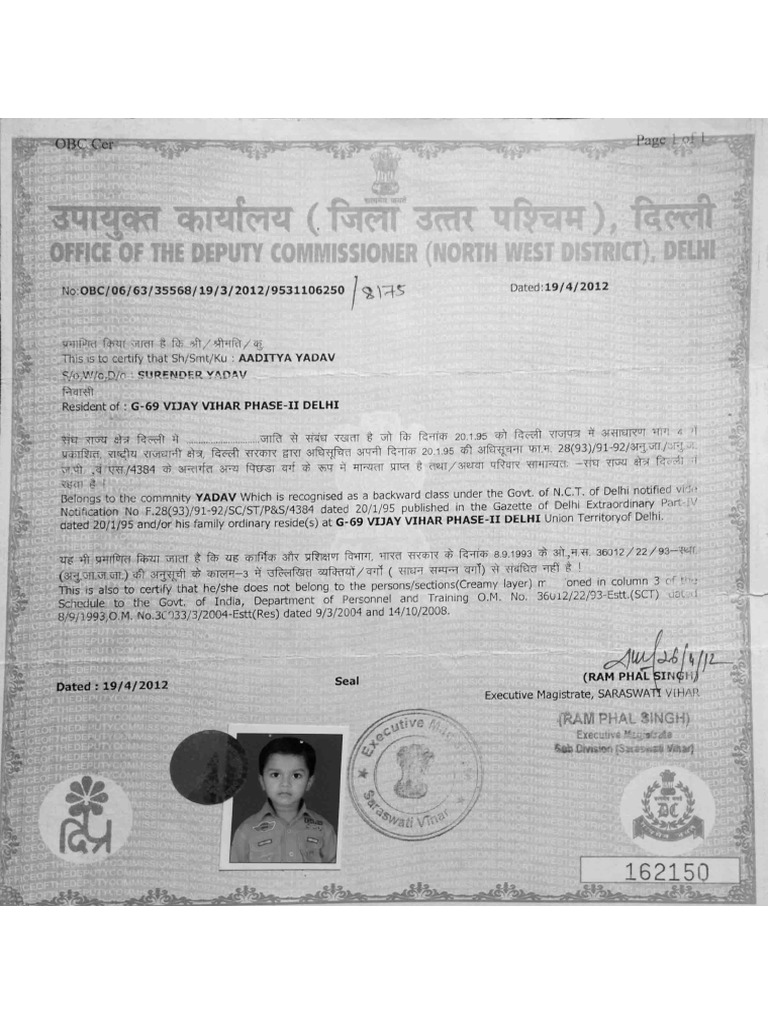 OBC Cer
Page 1 of 1
सत्यमेव जयते
उपायुक्त कार्यालय ( जिला उत्तर पश्चिम ), दिल्ली
OFFICE OF THE DEPUTY COMMISSIONER (NORTH WEST DISTRICT), DELHI
No:OBC/06/63/35568/19/3/2012/9531106250 /8175
Dated:19/4/2012
प्रमाणित किया जाता है कि श्री/श्रीमति/कु
This is to certify that Sh/Smt/Ku : AADITYA YADAV
S/o,W/o,D/o : SURENDER YADAV
निवासी
Resident of : G-69 VIJAY VIHAR PHASE-II DELHI
संघ राज्य क्षेत्र दिल्ली में ........................जाति से संबंध रखता है जो कि दिनांक 20.1.95 को दिल्ली राजपत्र में असाधारण भाग 4 में
प्रकाशित, राष्ट्रीय राजधानी क्षेत्र, दिल्ली सरकार द्वारा अधिसूचित अपनी दिनांक 20.1.95 की अधिसूचना फा.म. 28(93)/91-92/अनु.जा/अनु.ज.
ज.पी .,वं एस/4384 के अन्तर्गत अन्य पिछडा वर्ग के रूप में मान्यता प्राप्त है तथा/अथवा परिवार सामान्यतः -संघ राज्य क्षेत्र दिल्ली में
रहता है !
Belongs to the commnity YADAV Which is recognised as a backward class under the Govt. of N.C.T. of Delhi notified vide
Notification No F.28(93)/91-92/SC/ST/P&S/4384 dated 20/1/95 published in the Gazette of Delhi Extraordinary Part-IV
dated 20/1/95 and/or his family ordinary reside(s) at G-69 VIJAY VIHAR PHASE-II DELHI Union Territoryof Delhi.
यह भी प्रमाणित किया जाता है कि यह कार्मिक और प्रशिक्षण विभाग, भारत सरकार के दिनांक 8.9.1993 के ओ,म.स. 36012/22/93-स्था
(अनु.जा.ज.जा.) की अनुसूची के कालम-3 में उल्लिखित व्यक्तियों/वर्गो ( साधन सम्पन्न वर्गो) से संबंधित नही है !
This is also to certify that he/she does not belong to the persons/sections(Creamy layer) m oned in column 3 of the
Schedule to the Govt. of India, Department of Personnel and Training O.M. No. 36012/22/93-Estt.(SCT) dated
8/9/1993,O.M. No.36033/3/2004-Estt(Res) dated 9/3/2004 and 14/10/2008.
26/4/12
(RAM PHAL SINGH)
Dated : 19/4/2012
Seal
Executive Magistrate, SARASWATI VIHAR
(RAM PHAL SINGH)
Executive Magistrate
Sub Division (Saraswati Vihar)
Executive Magistrate
Saraswati Vihar
DC
162150